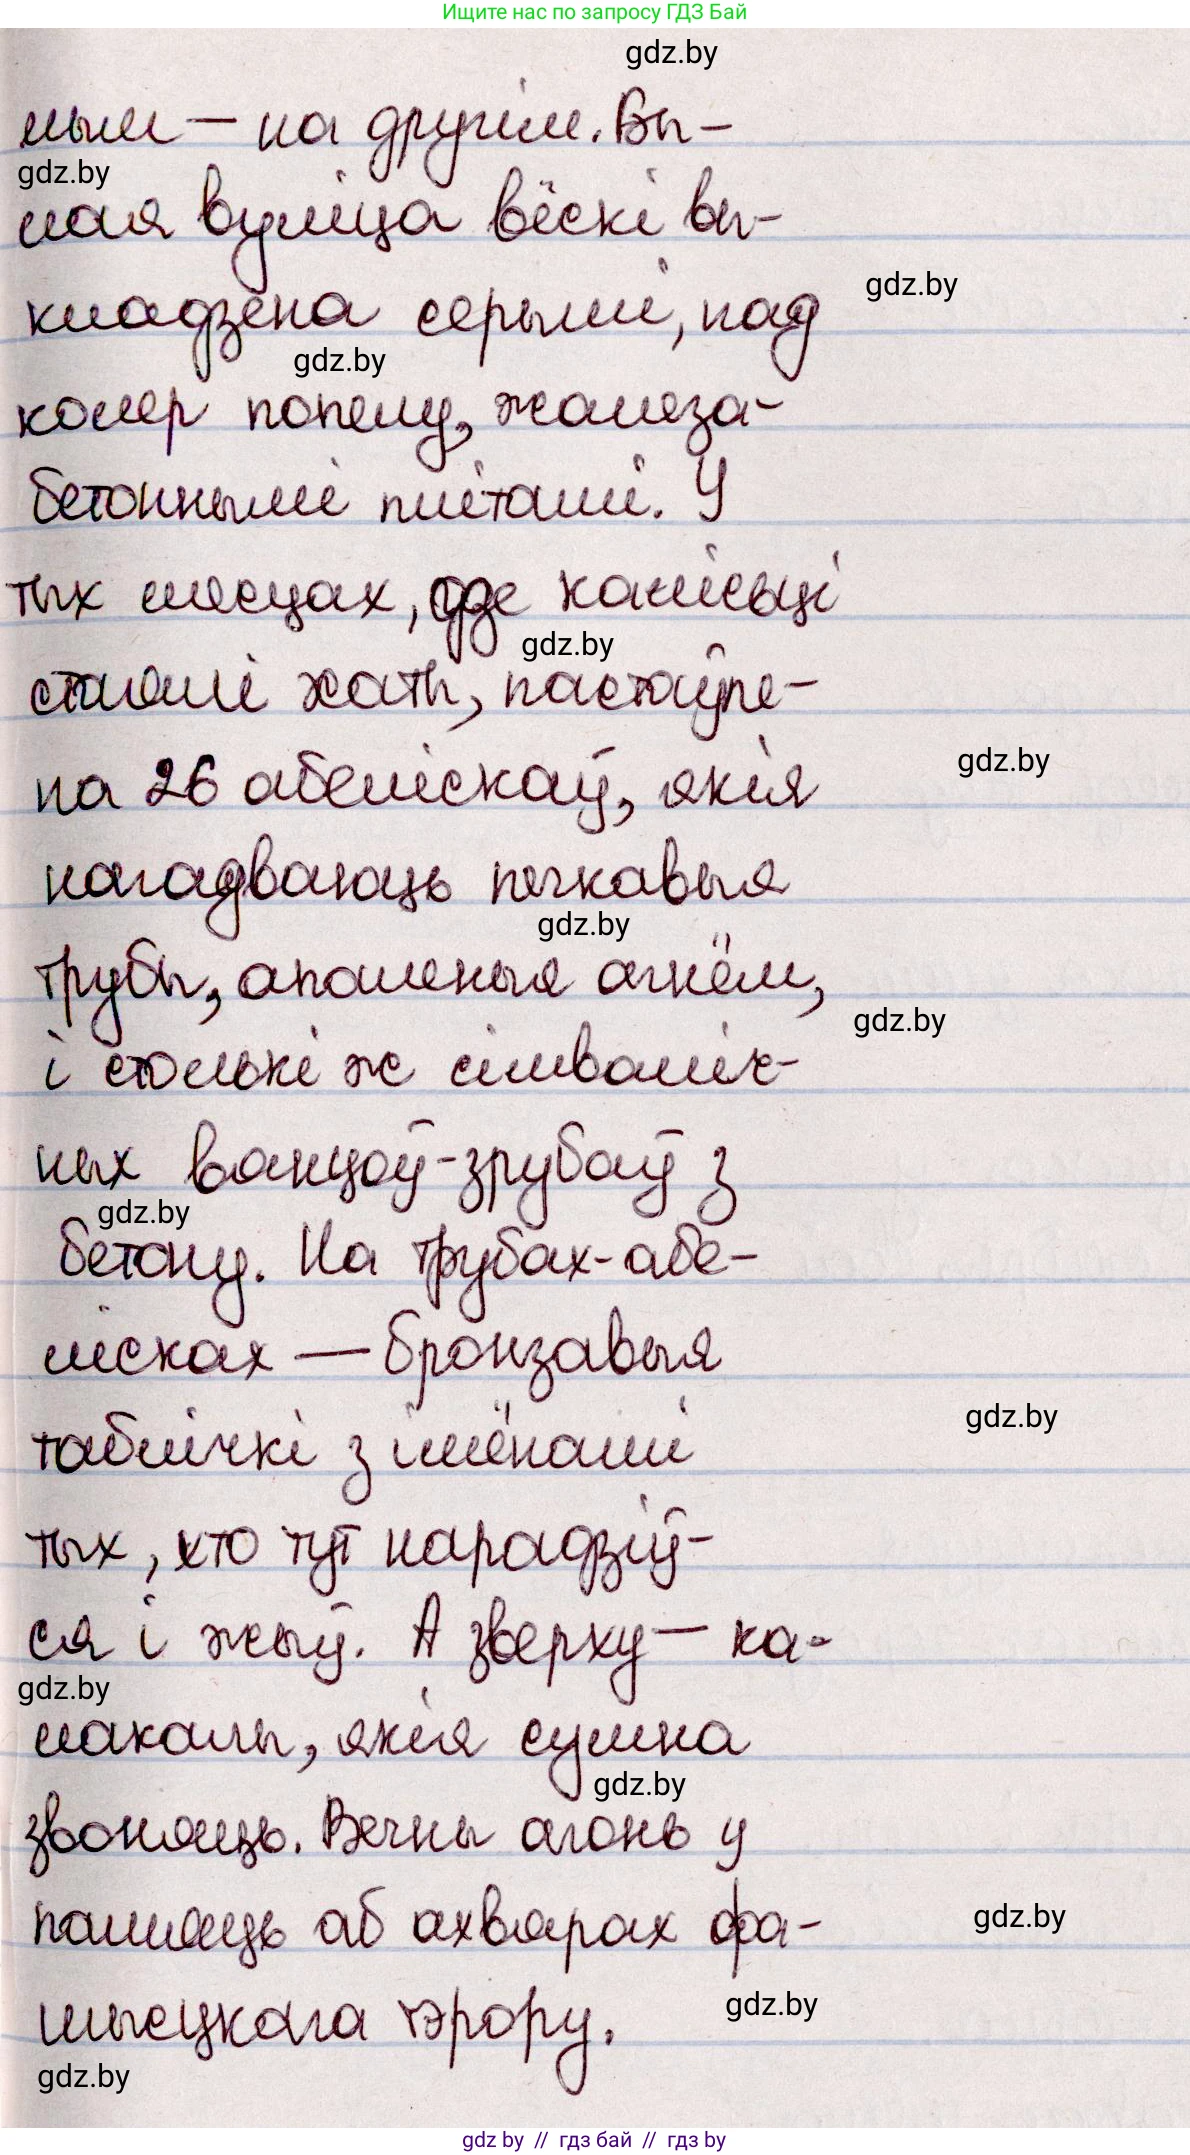 Ищите нас по запросу ГДЗ Бай
gdz.by
ным — на другім. Вы-
gdz.by
лая вуліца вёскі вы-
gdz.by
кладзена серымі, пад
gdz.by
колер попелу, жалеза-
бетоннымі плітамі. У
тых месцах, дзе калісьці
gdz.by
стаялі хаты, пастаўле-
gdz.by
на 26 абеліскаў, якія
нагадваюць печкавыя
gdz.by
трубы, апаленыя агнём,
gdz.by
і столькі ж сімваліч-
ных вянцоў-зрубаў з
gdz.by
бетону. На трубах-абе-
лісках — бронзавыя
gdz.by
таблічкі з імёнамі
тых, хто тут нарадзіў-
ся і жыў. А зверху — ка-
gdz.by
лаколы, якія сумна
gdz.by
звоняць. Вечны агонь у
памяць аб ахвярах фа-
gdz.by
шысцкага тэрору.
gdz.by
gdz.by
gdz by // гдз бай // gdz by